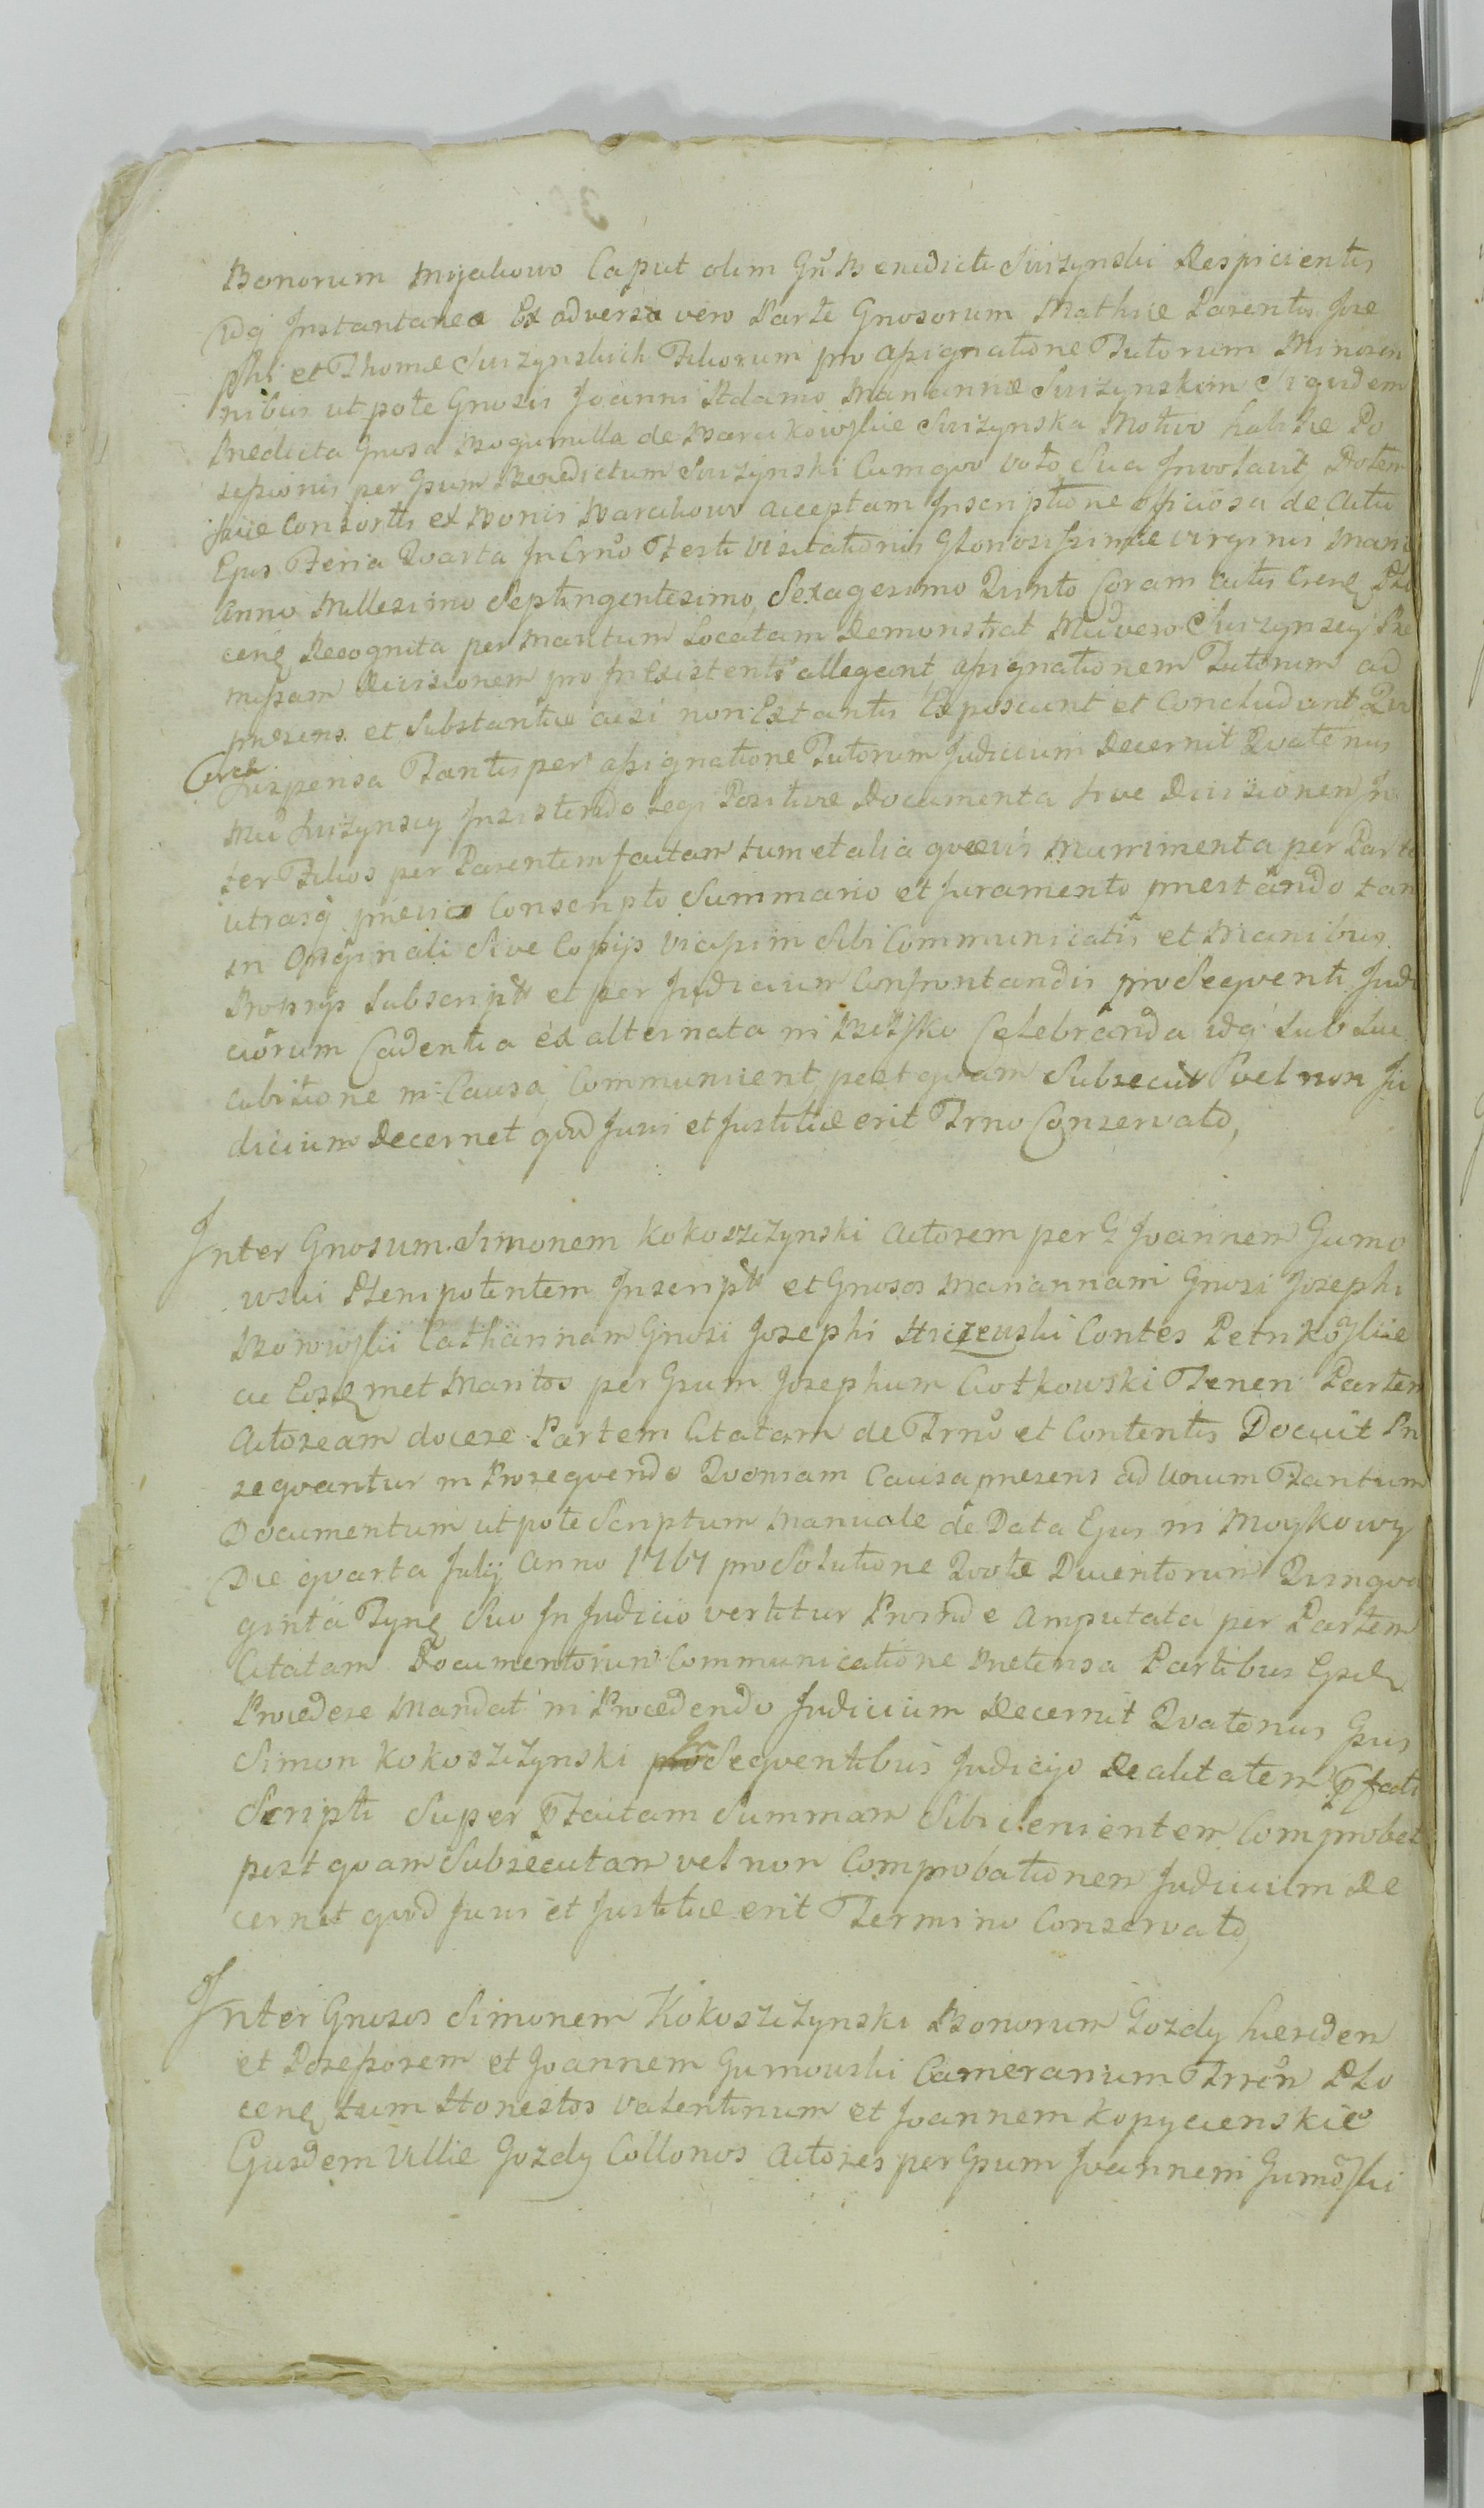 Bonorum Myakowo Caput olim Gn̄ Benedicti Suszynski Respicientis
idq̨ Instantanea Ex adversa vero Parte Gnosorum Mathiæ Parentis Jose
phi et Thomæ Suszynskich Filiorum pro assignatione Tutorum Minoren
nibus utpote Gnosis Joanni Adamo Mariannæ Suszynskim Siquidem
Prædicta Gnosa Bogumilla de Suszynska Motivo habitæ Po
sessionis per Gsum Benedictum Suszynski Cum quo voto Sua Dotem
suæ Consortis ex Bonis acceptam Inscriptione officiosa de Actu
Ejus Feria Quarta In Crno Festi Visitationis Gloriosissimæ Virginis Mari
Anno Millesimo Septingentesimo Sexagesimo Quinto Coram Actis Plo
cenę Recognita per Maritum Locatam Demonstrat Mu vero Suszynscy Præ
missam Divisionem pro Inexistenti allegant assignationem Tutorum ad
præsens et Substantiæ acsi non Extantis Exposcunt et Concludunt Qu
Circa
suspensa Tantisper assignatione Tutorum Judicium Decernit Quatenus
Mu Suszynscy Insistendo Legi Positivæ Documenta sive Divisionem In
ter Filios per Parentem factam tum et alia quævis Munimenta per Parte
utrasq̨ prævio Conscripto Summario et Juramento præstando tam
in Originali Sive Copijs vicissim Sibi Communicatis et Manibus
Proprijs Subscriptis et per Judicium Confrontandis pro Sequenti Judi
ciorum Cadentia ex alternata in Celebranda idq̨ Sub Suc
cubitione in Causa Communicent post quam Subsecut vel non Ju
dicium Decernet quod Juris et Justitiæ erit Trno Conservato,
Inter Gnosum Simonem Kokoszczynski Actorem per G Joannem Gumo
wski Plenipotentem Inscriptt et Gnosos Mariannam Gnosi Josephi
Catharinam Gnosi Josephi Contes
ac Eosdemmet Maritos per Gsum Josephum Ciotkowski Teneri Partem
Actoream docere Partem Citatam de Trno et Contentis Docuit Pro
sequantur in Prosequendo Quoniam Causa præsens ad Unum Tantum
Documentum utpote Scriptum Manuale de Data Ejus in Moykowy
Die quarta Julij Anno 1767 pro Solutione Quotæ Ducentorum Quinqua
ginta Tynę Suo In Judicio vertitur Proinde amputata per Partem
Citatam Documentorum Communicatione Prætensa Partibus
Procedere Mandat in Procedendo Judicium Decernit Quatenus Gsus
Simon Kokoszczynski in Sequentibus Judicijs Realitatem Pfacti
Scripti Super Ptactam Summam Sibi Servientem Comprobet
post quam Subsecutam vel non Comprobationem Judicium De
cernet quod Juris et Justitiæ erit Termino Conservato,
Inter Gnosos Simonem Kokoszczynski Bonorum Gozdy hæredem
et Possessorem et Joannem Gumowski Camerarium Trren Plo
cenę tum Honestos Valentinum et Joannem Kopycienskie
Ejusdem Villæ Gozdy Collonos Actores per Gsum Joannem Gumoski